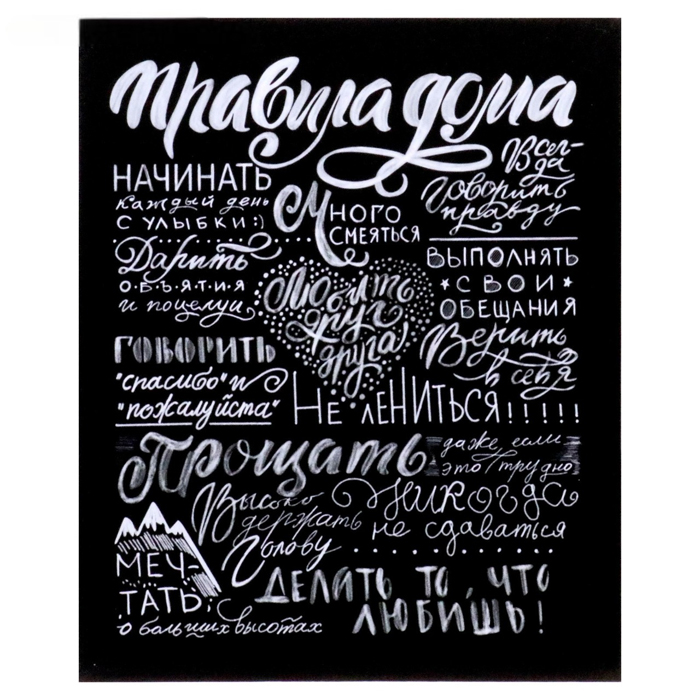 Правила дома
НАЧИНАТЬ
каждый день
С УЛЫБКИ:)
МНОГО
СМЕЯТЬСЯ
Всег-
да
говорить
правду
Дарить
ОБЪЯТИЯ
и поцелуи
Любить
друг
друга!
ВЫПОЛНЯТЬ
СВОИ
ОБЕЩАНИЯ
ГОВОРИТЬ
"спасибо" и
"пожалуйста"
Верить
в себя
НЕ ЛЕНИТЬСЯ!!!!!
Прощать
даже если
это трудно
Высоко
держать
голову
Никогда
не сдаваться
МЕЧ-
ТАТЬ
о больших высотах
ДЕЛАТЬ ТО, ЧТО
ЛЮБИШЬ!